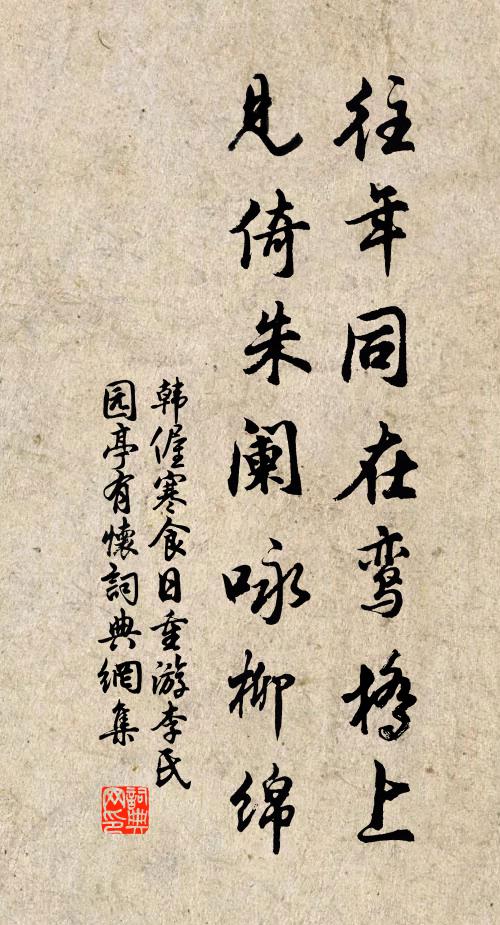 往年同在鸾橋上
见倚朱阑咏柳绵
韩偓寒食日重游李氏
园亭有懷詞典網集
詞典网印